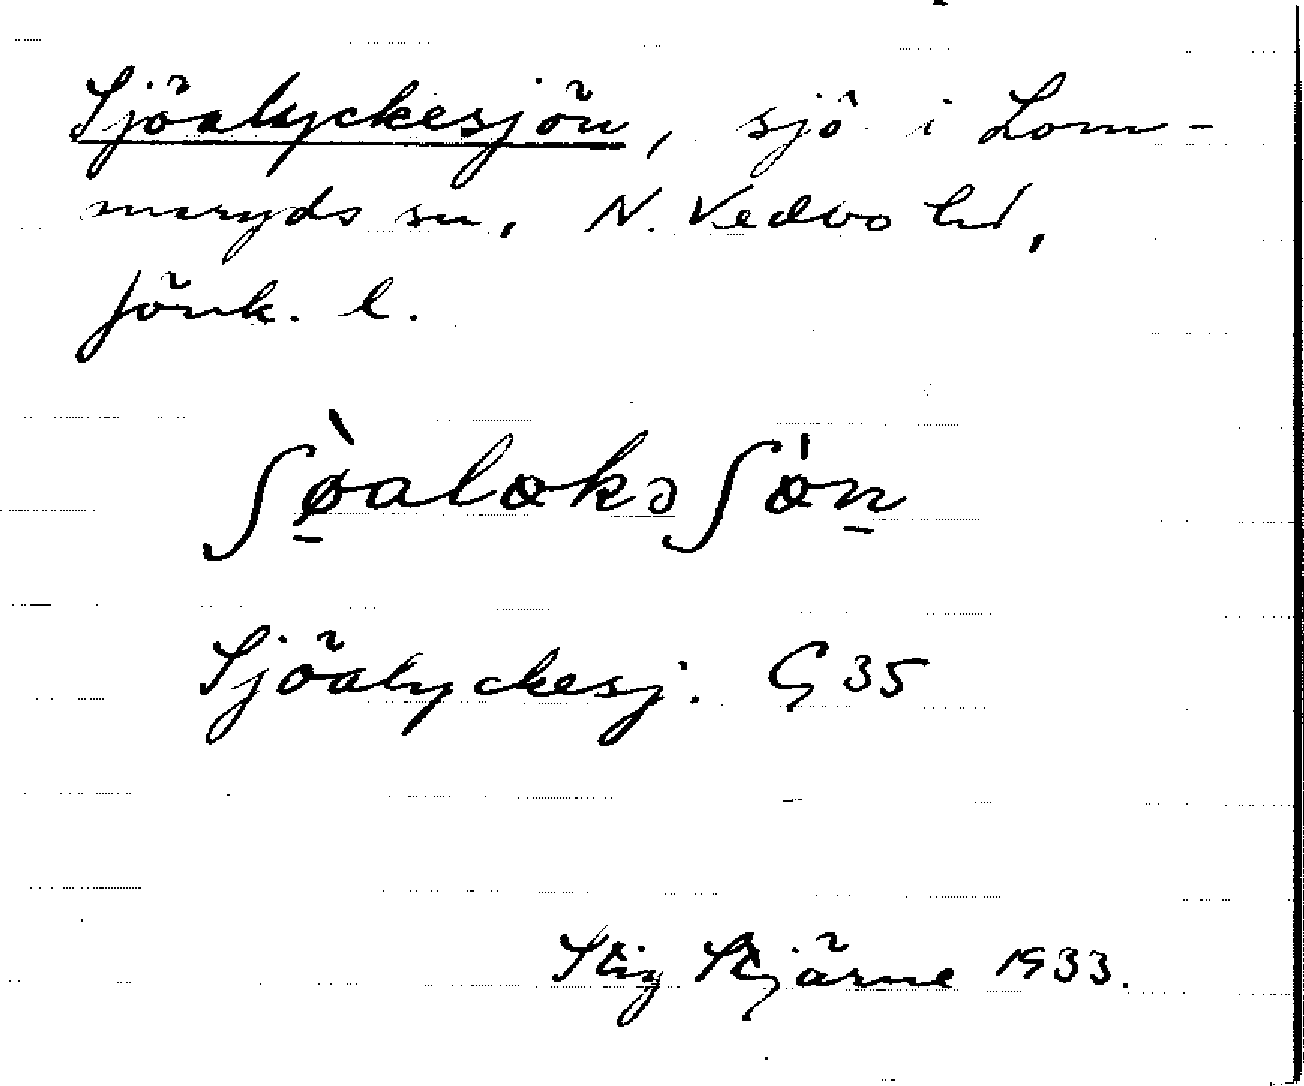 Sjöalyckesjön, sjö i Lom-
maryds sn, N. Vedbo hd,
Jönk. l.
ʃø̠̀aløkəʃø̍n̠
Sjöalyckesj. G 35
Stig Stjärne 1933.